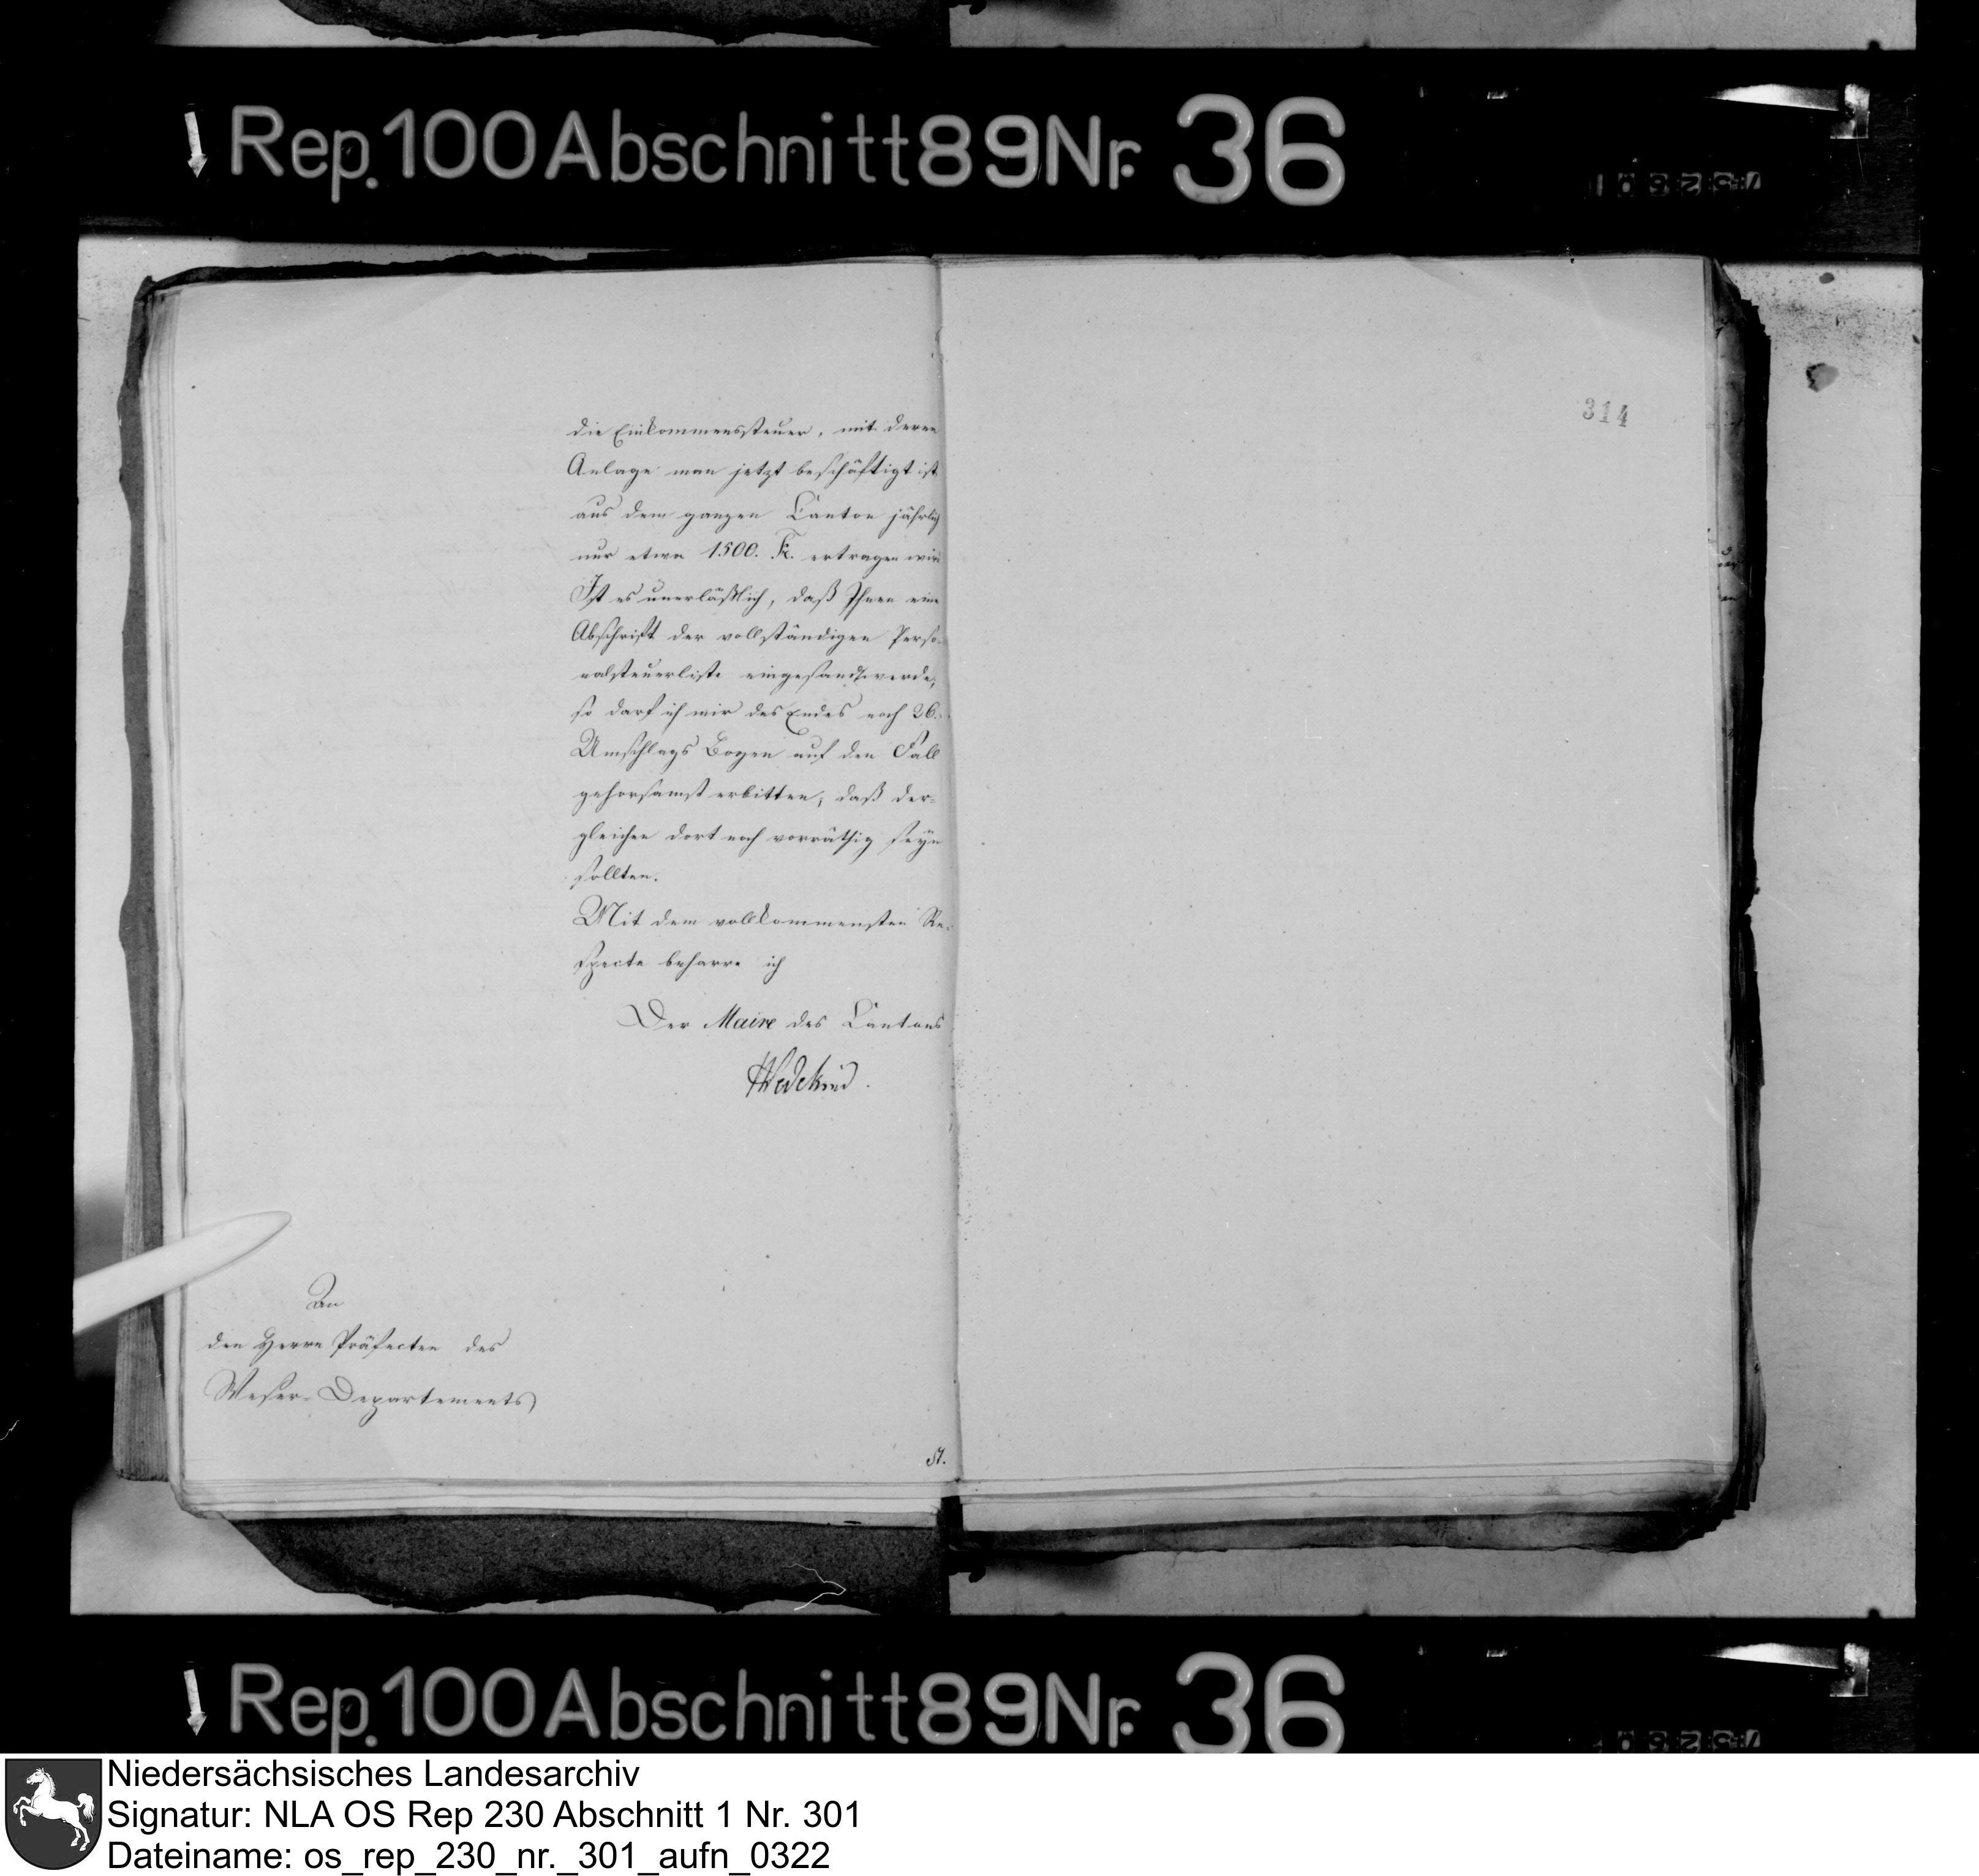 Rep. 100 Abschnitt 89 Nr. 36
314
die Einkommenssteuer, mit deren
Anlage man jetzt beschäftigt ist
aus dem ganzen Canton jährlich
nur etwa 1500. Fr. ertragen wird
Ist es unerläßlich, daß Ihnen eine
Abschrift der vollständigen Perso-
nalsteuerliste eingesandt werde,
so darf ich mir des Endes noch 26.
Umschlags Bogen auf den Fall
gehorsamst erbitten, daß der-
gleichen dort noch vorräthig seyn
sollten.
Mit dem vollkommensten Re-
specte beharre ich
Der Maire des Cantons
Wedekind.
An
den Herrn Präfecten des
Weser-Departements
St.
Rep. 100 Abschnitt 89 Nr. 36
Niedersächsisches Landesarchiv
Signatur: NLA OS Rep 230 Abschnitt 1 Nr. 301
Dateiname: os_rep_230_nr._301_aufn_0322